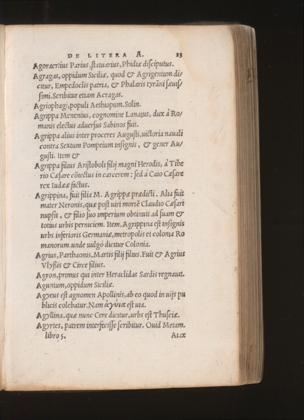 DE LITERA A. 23
Agoracritus Parius, statuarius, Phidiæ discipulus.
Agragas, oppidum Siciliæ, quod & Agrigentum di-
citur, Empedoclis patria, & Phalaris tyrãni sæuis-
simi. Scribitur etiam Acragas.
Agriophagi, populi Aethiopum. Solin.
Agrippa Menenius, cognomine Lanatus, dux à Ro-
manis electus aduersus Sabinos fuit.
Agrippa alius inter proceres Augusti, uictoria nauali
contra Sextum Pompeium insignis, & gener Au-
gusti. Item &
Agrippa filius Aristoboli filij magni Herodis, à Tibe
rio Cæsare cõiectus in carcerem: sed à Caio Cæsare
rex Iudææ factus.
Agrippina, fuit filia M. Agrippæ prædicti. Alia fuit
mater Neronis, quæ post uiri mortẽ Claudio Cæsari
nupsit, & filio suo imperium obtinuit ad suam &
totius urbis perniciem. Item, Agrippina est insignis
urbs inferioris Germaniæ, metropolis et colonia Ro
manorum unde uulgò dicitur Colonia.
Agrius, Parthaonis, Martis filij filius. Fuit & Agrius
Vlyssis & Circes filius.
Agron, primus qui inter Heraclidas Sardis regnauit.
Aguntum, oppidum Siciliæ.
Agyeus est agnomen Apollinis, ab eo quod in uijs pu
blicis colebatur. Nam ἀγυιὰ est uia.
Agyllina, quæ nunc Cere dicitur, urbs est Thusciæ.
Agyrtes, patrem interfecisse scribitur. Ouid Metam.
libro 5.